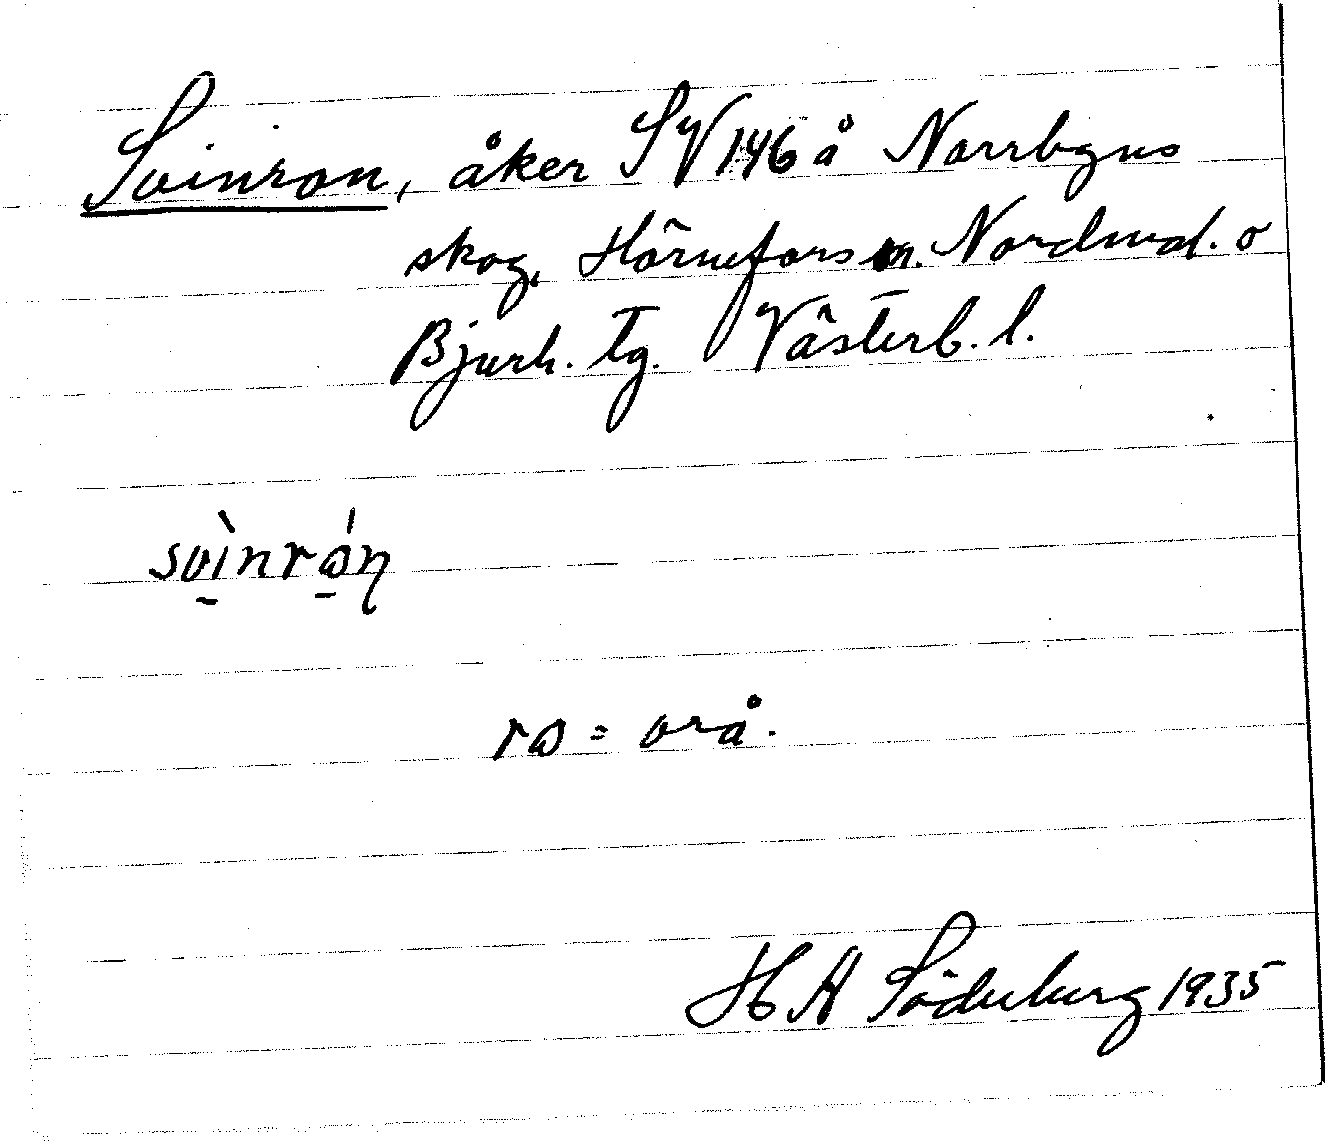 Svinron, åker SV 146 å Norrbyns
skog, Hörnefors sn. Nordmal. o
Bjurh. tg. Västerb. l.
svìnrǿn
rø = vrå.
H A Söderberg 1935